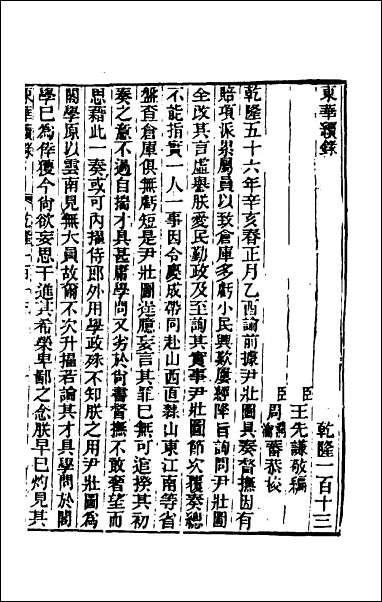 東華續錄
乾隆一百十三
臣王先謙敬編
臣周 蕃恭校
乾隆五十六年辛亥春正月乙酉諭前據尹壯圖具奏督撫因有
賠項派累屬員以致倉庫多虧小民興歎屢經降旨詢問尹壯圖
全改其言虛譽朕愛民勤政及至詢其實事尹壯圖節次覆奏總
不能指實一人一事因令慶成帶同赴山西直隸山東江南等省
盤查倉庫俱無虧短是尹壯圖逞臆妄言其罪已無可逭揆其初
奏之意不過自揣才具甚庸學問又劣於尙書督撫不敢奢望而
思藉此一奏或可內擢侍郎外用學政殊不知朕之用尹壯圖為
閣學原以雲南見無大員故爾不次升擢若論其才具學問於閣
學已為倖獲今尙欲妄思干進其希榮卑鄙之念朕早已灼見其
東華續錄